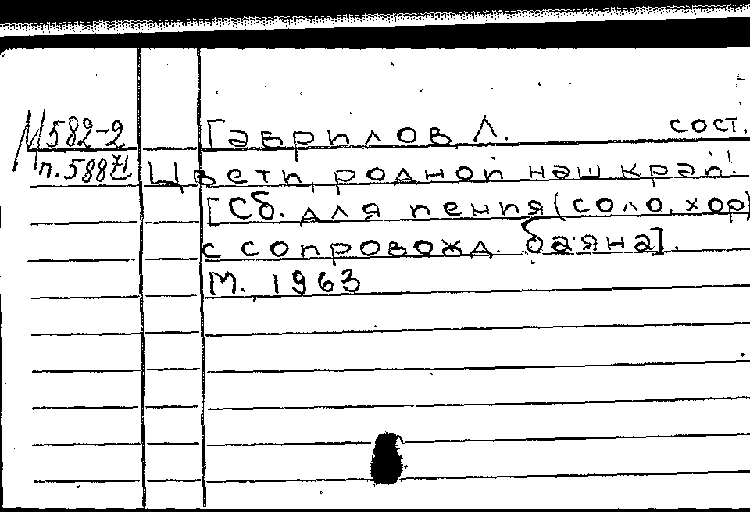 М582-2 Гаврилов, Л. сост.
п.58871 Цвети, родной наш край!
[Сб. для пения (соло, хор)
с сопровожд. баяна].
М. 1963